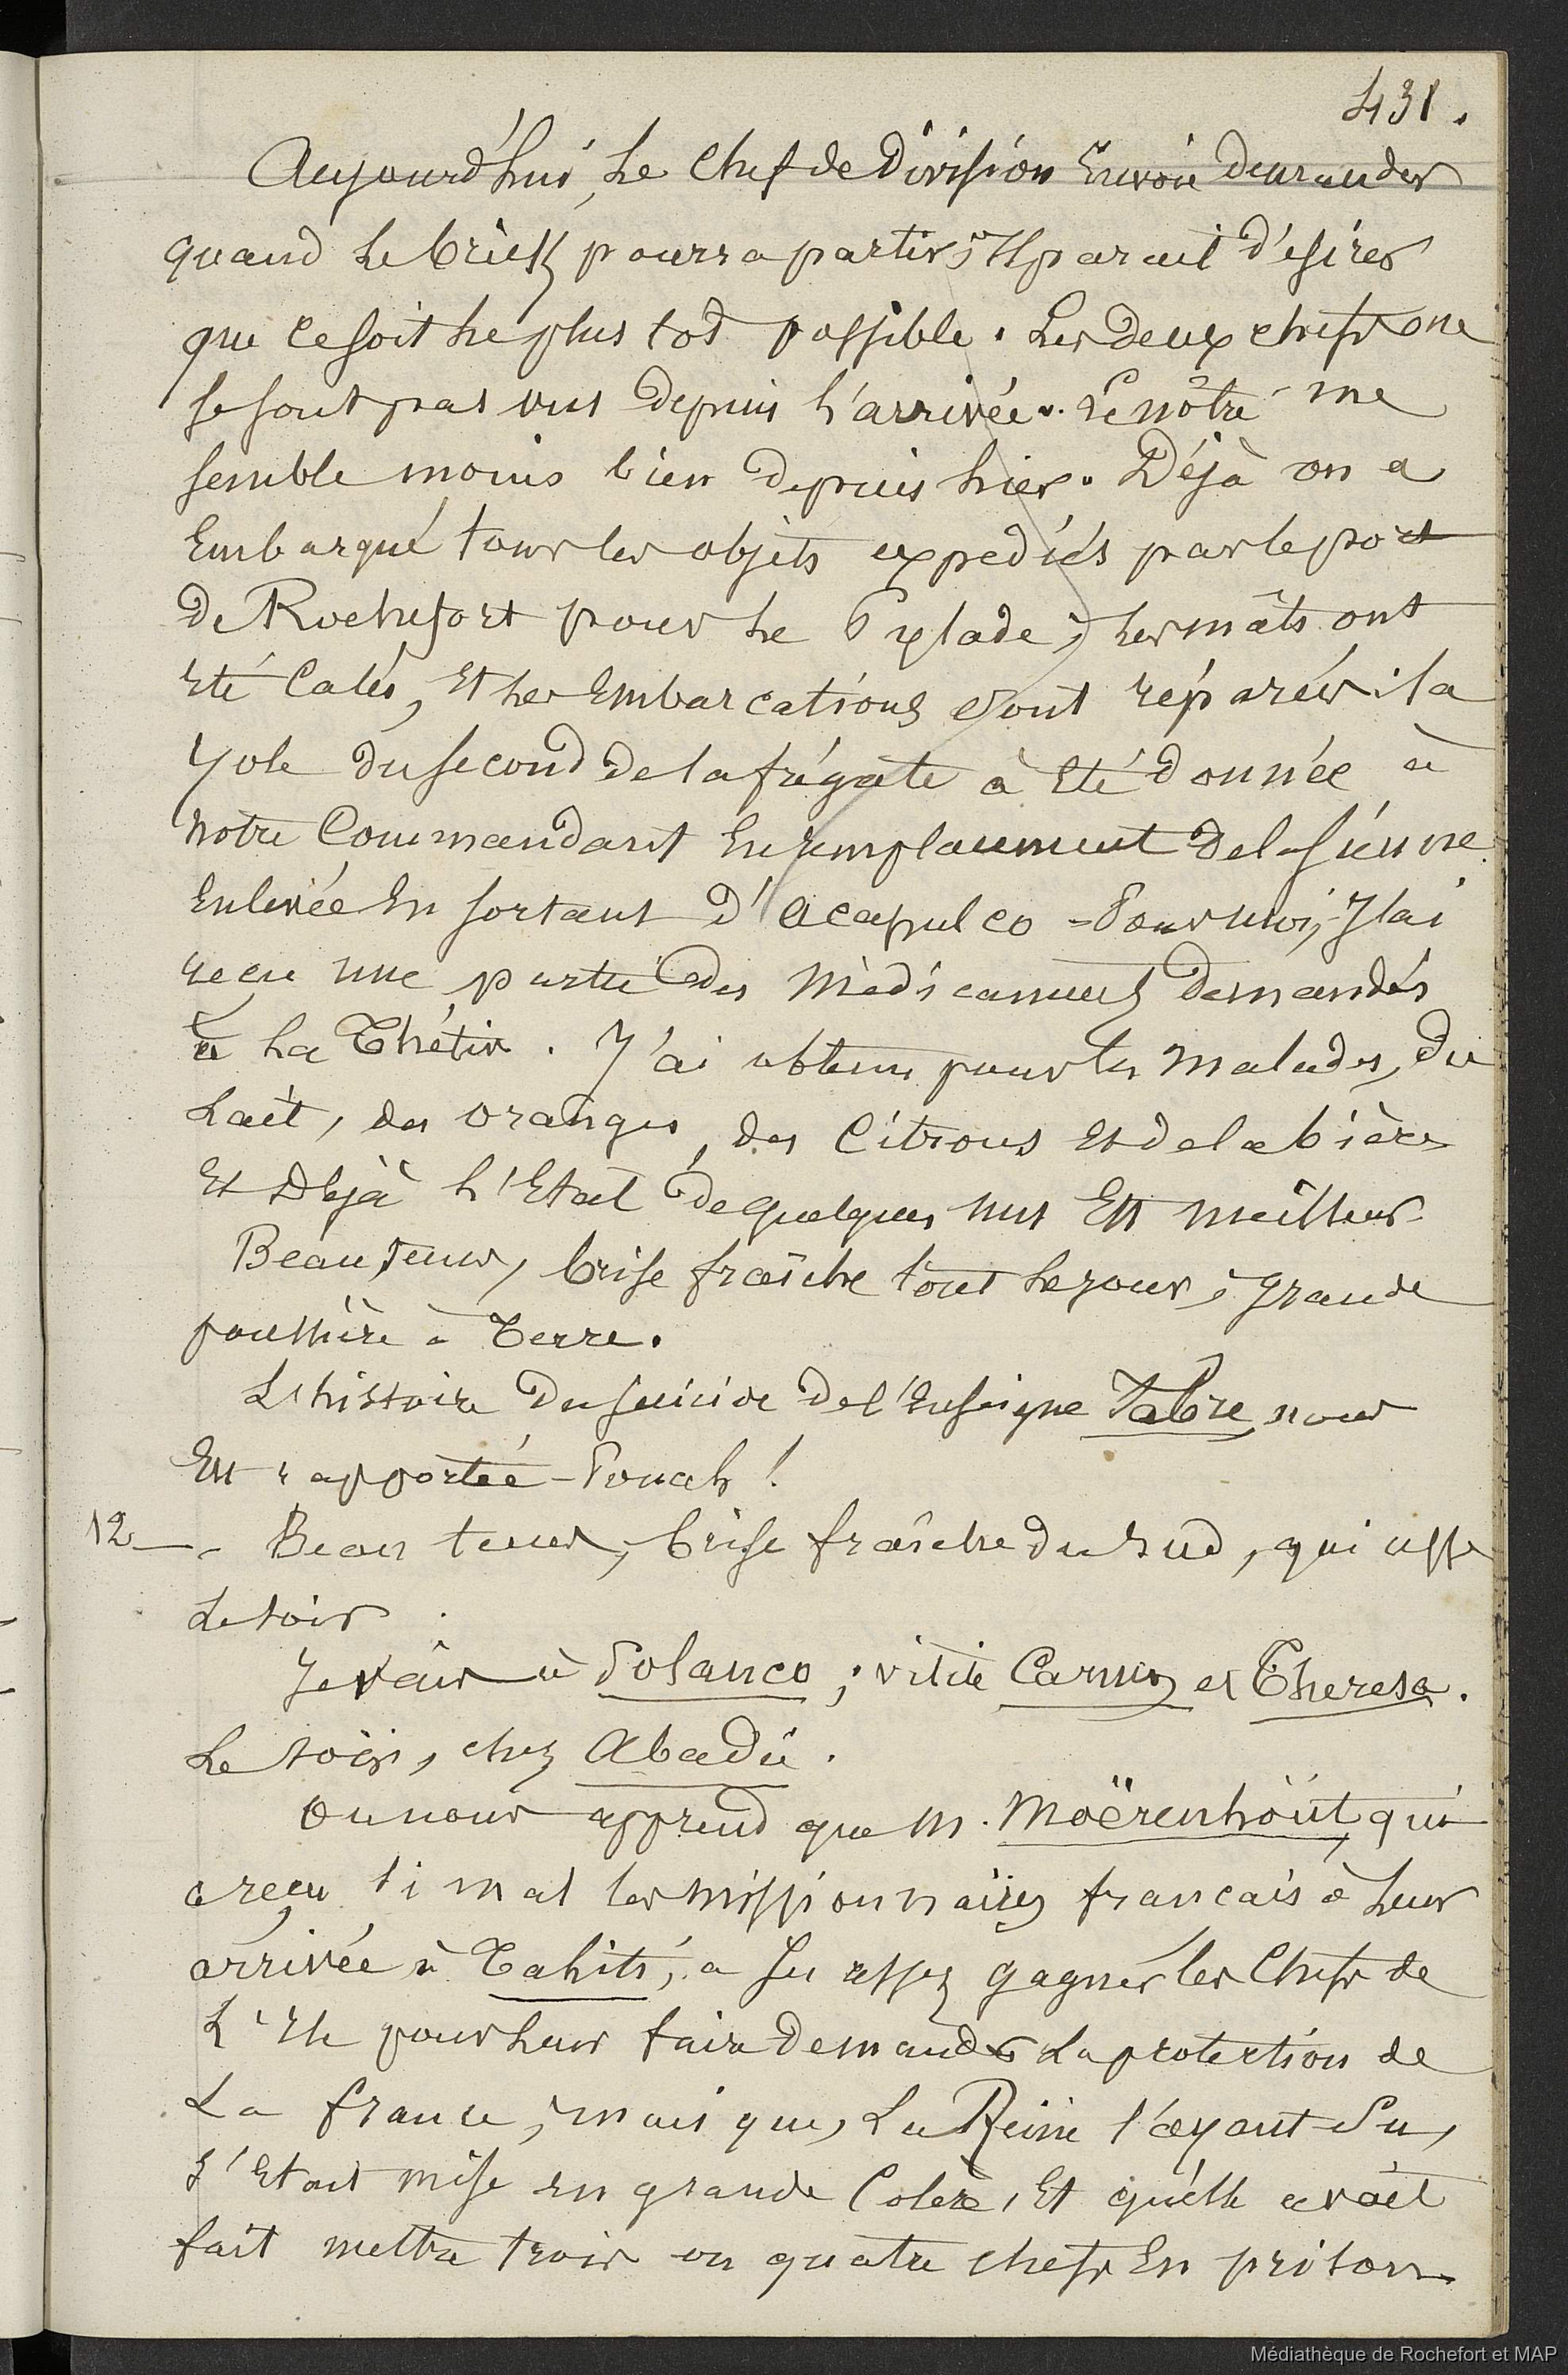 431.
Aujourd'hui, le Chef de Division Envoie demander
quand le brick pourra partir; Il parait désirer
que ce soit le plus tot possible. Les deux chefs ne
se sont pas vus depuis l'arrivée. Le nôtre me
semble moins bien depuis hier. Déjà on a
Embarqué tous les objets expediés par le port
de Rochefort pour le Pylade; les mâts ont
été Calés, Et les Embarcations sont réparées; la
Yole du second de la frégate à été donnée à
notre Commandant En remplacement de la sienne
Enlevée En sortant d'Acapulco - Pour moi, J'ai
reçu une partie des Médicamens demandés
à la Thétis. J'ai obtenu pour les malades, du
Lait, des oranges, des Citrons et de la bière
Et Déjà l'Etat de quelques uns Est meilleur.
Beau tems, brise fraîche tout le jour; grande
poussière à Terre.
L'histoire du suicide de l'Enseigne Fabre nous
Est rapportée - Pouah!
12 - Beau tems, brise fraîche du sud, qui cesse
Le soir.
Je vais à Polanco; visite Carmen et Theresa.
Le soir, chez Abadie.
On nous apprend que M. Moërenhout, qui
a reçu si mal les missionnaires francais à leur
arrivée à Tahiti, a su assez gagner les Chefs de
L'Ile pour leur faire demander La protection de
La france; mais que, La Reine l'ayant su,
s'Etait mise en grande Colère, Et qu'elle avait
fait mettre trois ou quatre chefs En prison
Médiathèque de Rochefort et MAP